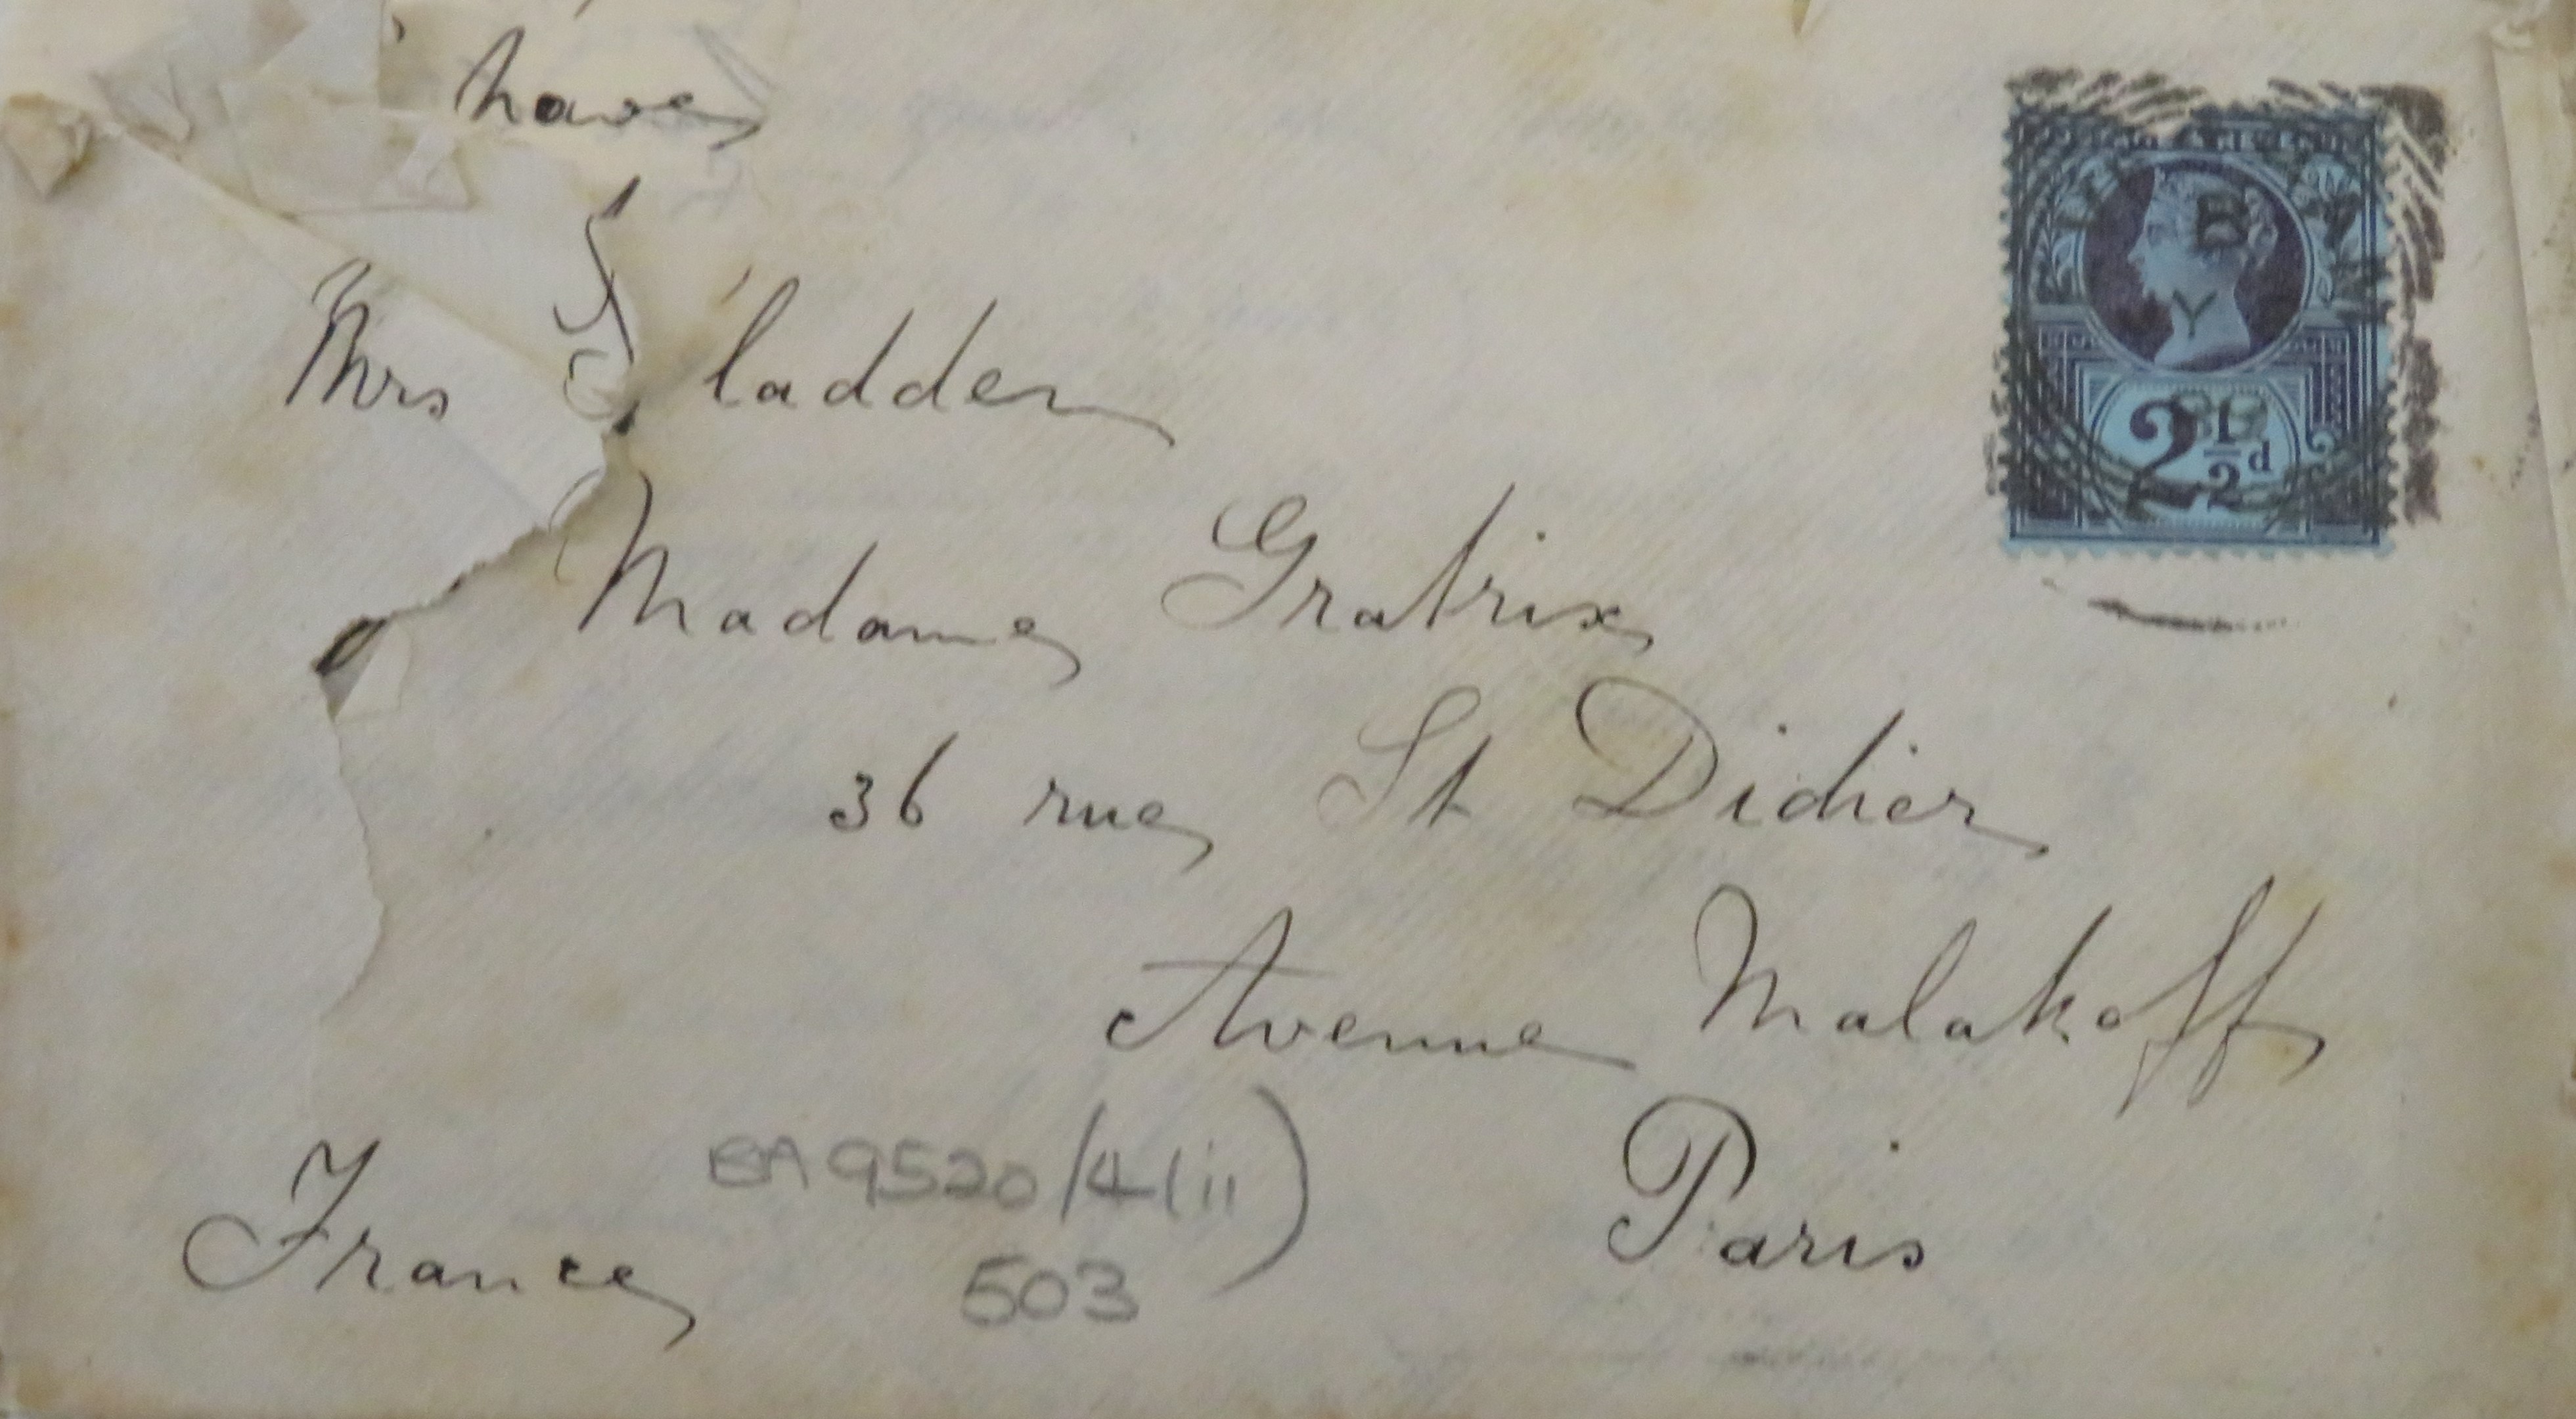 have
Mrs Sladden
Madame Gratrix
36 rue St Didier
Avenue Malakoff
Paris
France
BA 9520/4(ii)
503
B
Y
89
2½d